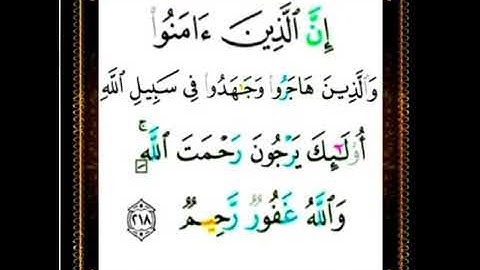 إِنَّ ٱلَّذِينَ ءَامَنُوا۟
وَٱلَّذِينَ هَاجَرُوا۟ وَجَـٰهَدُوا۟ فِى سَبِيلِ ٱللَّهِ
أُو۟لَـٰٓئِكَ يَرْجُونَ رَحْمَتَ ٱللَّهِ ۚ
وَٱللَّهُ غَفُورٌ رَّحِيمٌ ٢١٨